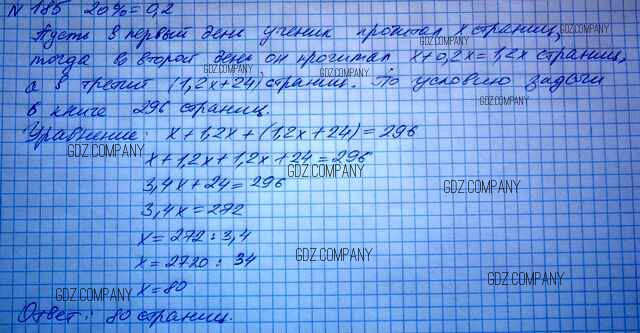 N 185 20% = 0,2
Пусть в первый день ученик прочитал x страниц,
тогда во второй день он прочитал x+0,2x=1,2x страниц,
а в третий (1,2x+24) страниц. По условию задачи
в книге 296 страниц.
Уравнение: x+1,2x+(1,2x+24)=296
x+1,2x+1,2x+24=296
3,4x+24=296
3,4x=272
x=272:3,4
x=2720:34
x=80
Ответ: 80 страниц.
GDZ.COMPANY
GDZ.COMPANY
GDZ.COMPANY
GDZ.COMPANY
GDZ.COMPANY
GDZ.COMPANY
GDZ.COMPANY
GDZ.COMPANY
GDZ.COMPANY
GDZ.COMPANY
GDZ.COMPANY